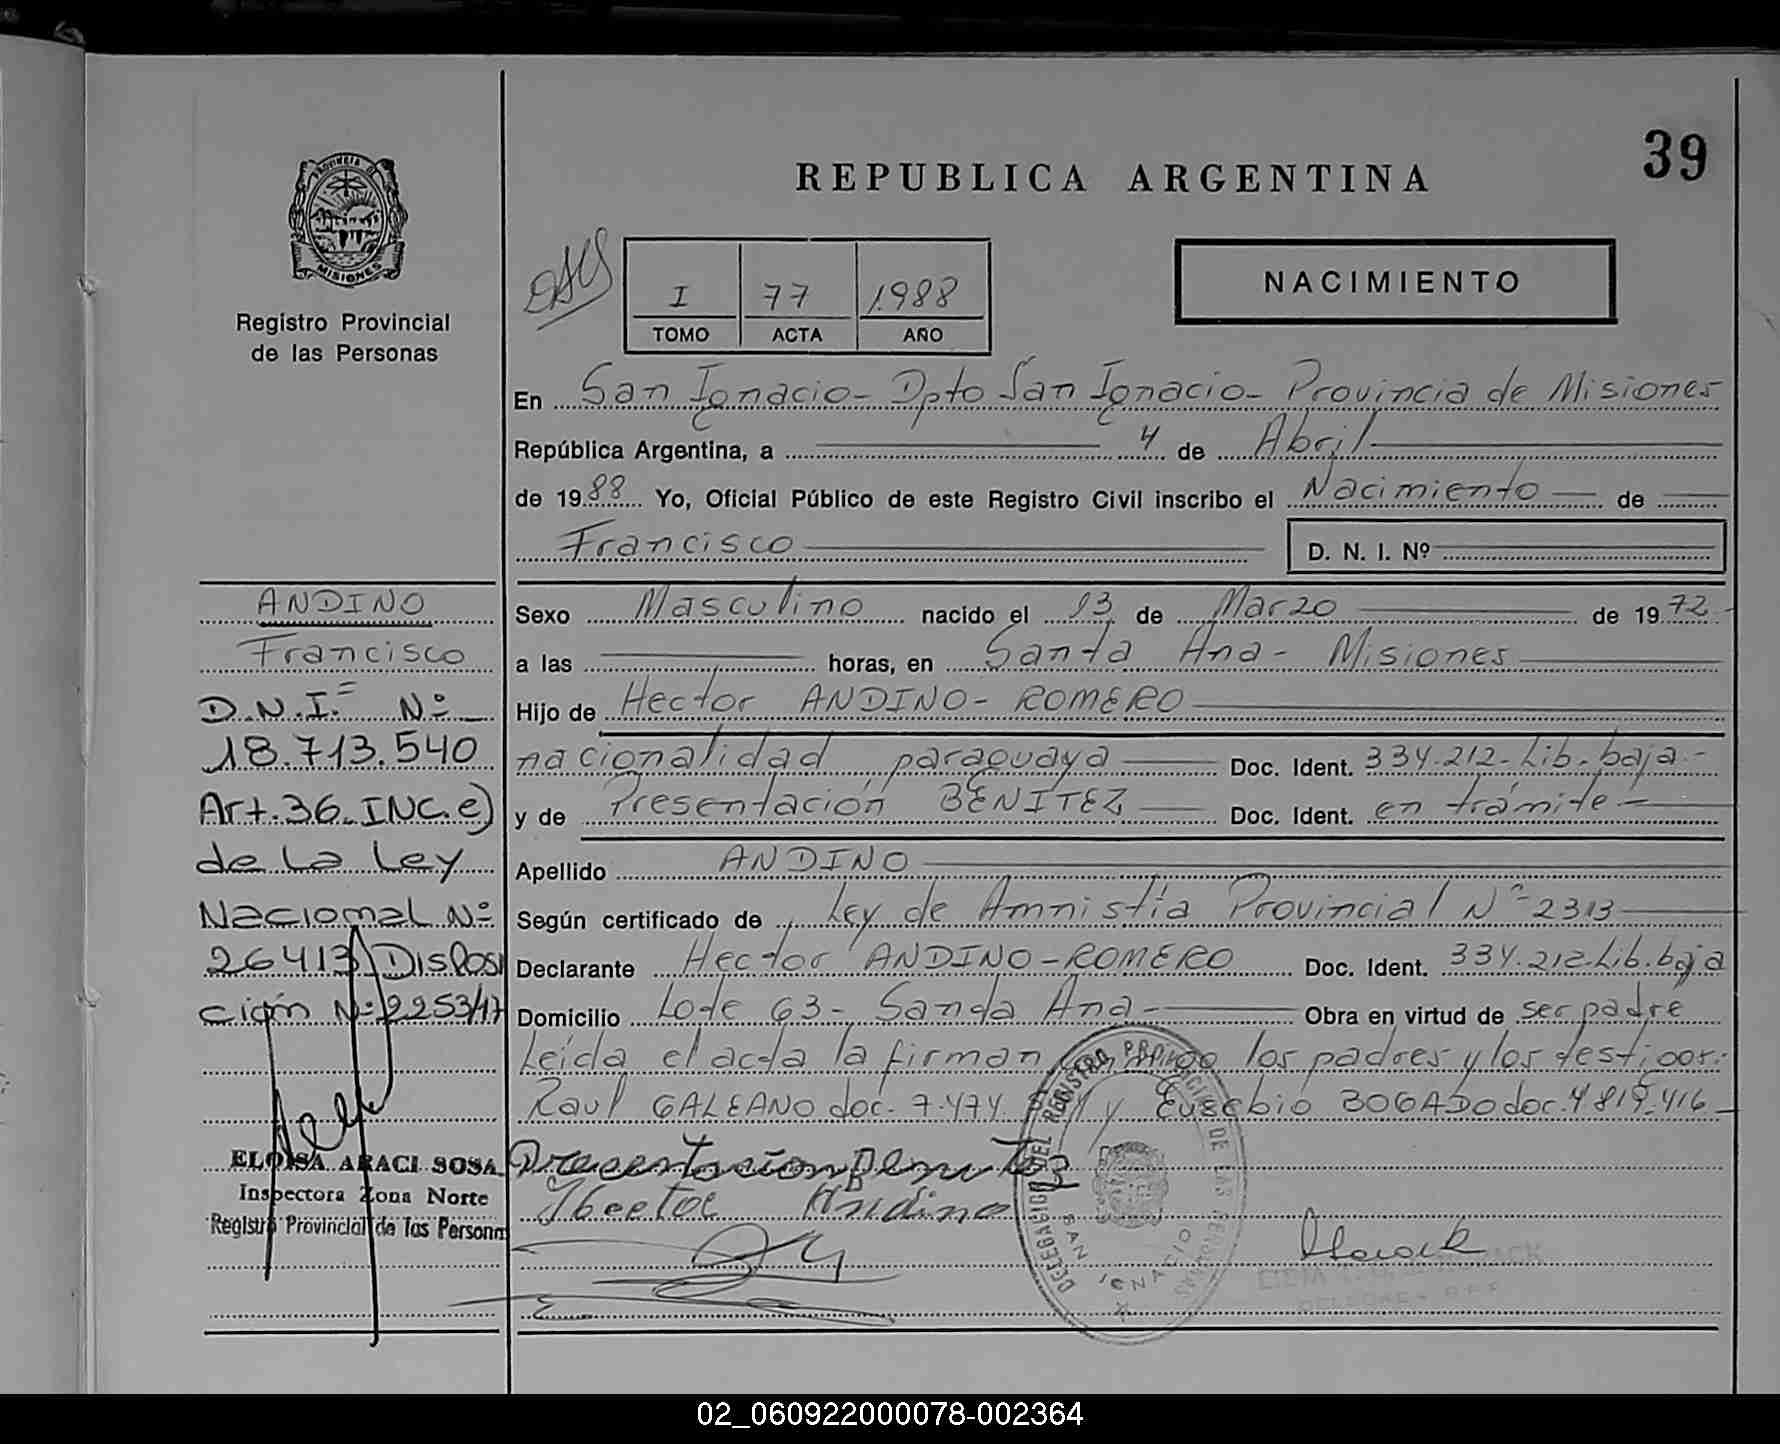 39
REPUBLICA ARGENTINA
PROVINCIA DE
MISIONES
Registro Provincial
de las Personas
NACIMIENTO
I 77 1988
TOMO ACTA AÑO
En San Ignacio - Dpto San Ignacio - Provincia de Misiones
República Argentina, a 4 de Abril
de 1988 Yo, Oficial Público de este Registro Civil inscribo el Nacimiento de
Francisco
D. N. I. Nº
Sexo Masculino nacido el 13 de Marzo de 1972
a las horas, en Santa Ana - Misiones
Hijo de Hector ANDINO - ROMERO
nacionalidad paraguaya Doc. Ident. 334.212 - Lib. baja -
y de Presentación BENITEZ Doc. Ident. en trámite -
Apellido ANDINO
Según certificado de Ley de Amnistía Provincial Nº 2313
Declarante Hector ANDINO - ROMERO Doc. Ident. 334.212 - Lib. baja
Domicilio Lote 63 - Santa Ana Obra en virtud de ser padre
Leída el acta la firman conmigo los padres y los testigos:
Raul GALEANO doc. 7.474. y Eusebio BOGADO doc. 4819.416
Presentacion Benitez
Hector Andino
ANDINO
Francisco
D.N.I. Nº
18.713.540
Art. 36 INC. e)
de La Ley
Nacional Nº
26413 Disposi
ción Nº 2253/17
ELOISA ARACI SOSA
Inspectora Zona Norte
Registro Provincial de las Persona
DELEGACION DEL REGISTRO PROVINCIAL DE LAS PERSONAS
SAN IGNACIO
02_060922000078-002364